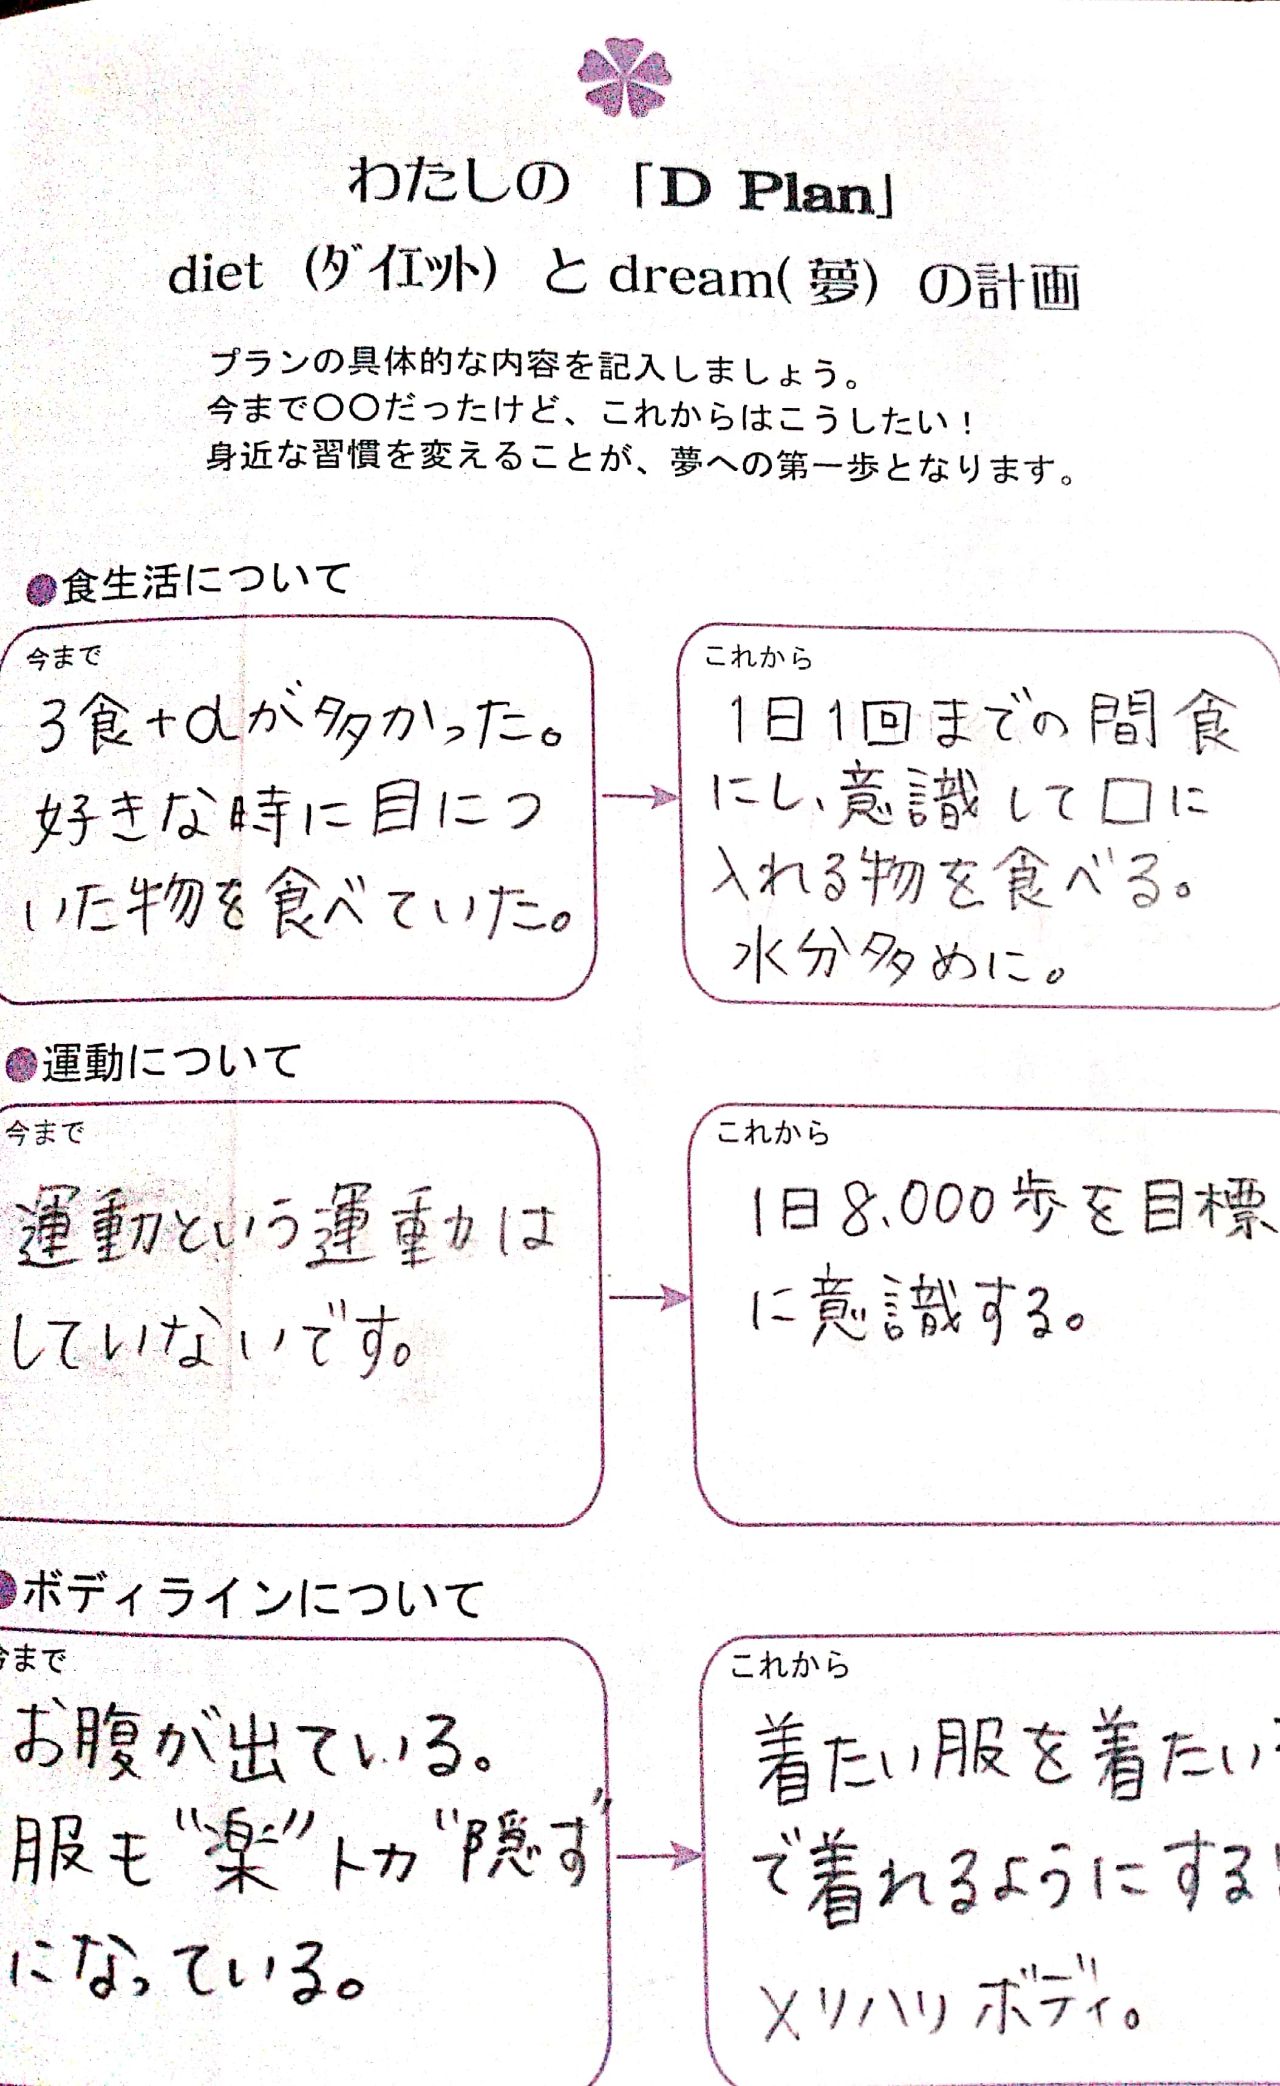 わたしの 「D Plan」
diet (ダイエット) と dream(夢) の計画
プランの具体的な内容を記入しましょう。
今まで〇〇だったけど、これからはこうしたい!
身近な習慣を変えることが、夢への第一歩となります。
●食生活について
今まで
3食+αが多かった。
好きな時に目につ
いた物を食べていた。
これから
1日1回までの間食
にし、意識して口に
入れる物を食べる。
水分多めに。
●運動について
今まで
運動という運動は
していないです。
これから
1日8,000歩を目標
に意識する。
●ボディラインについて
今まで
お腹が出ている。
服も"楽"トカ"隠す"
になっている。
これから
着たい服を着たい
で着れるようにする!
メリハリボディ。